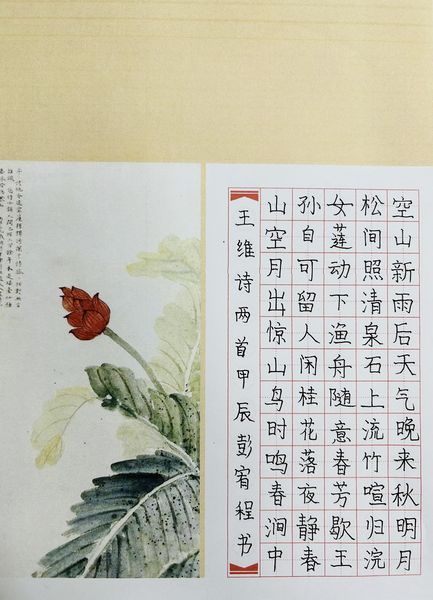 空山新雨后天气晚来秋明月
松间照清泉石上流竹喧归浣
女莲动下渔舟随意春芳歇王
孙自可留人闲桂花落夜静春
山空月出惊山鸟时鸣春涧中
王维诗两首甲辰彭宥程书